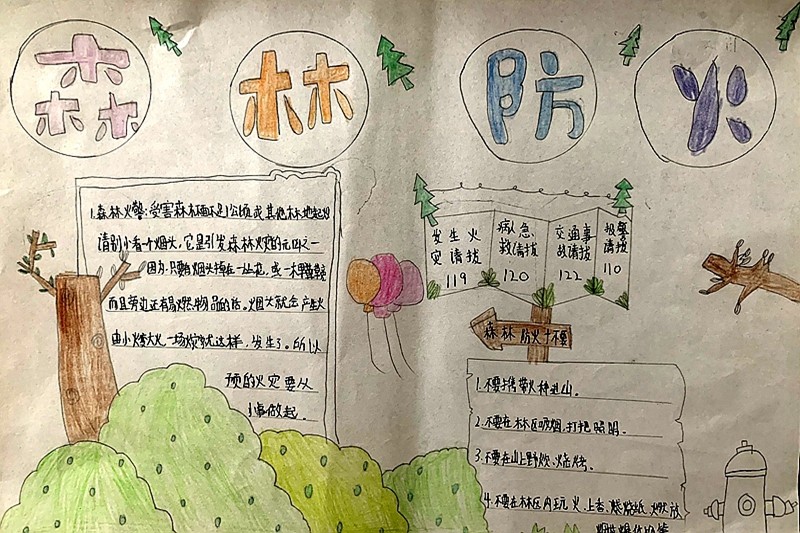 森林防火
1.森林火警:受害森林面不足1公顷或其他林地起火
请别小看一个烟头,它是引发森林火灾的元凶之一
因为.只要烟头掉在一丛花,或一木
而且旁边还有易燃物品的话.烟头就会产生火
由小火变大火.一场火灾就这样,发生了.所以
预防火灾要从
小事做起.
发生火
灾请拔
119
病人急
救请拔
120
交通事
故请拔
122
报警
请拔
110
森林防火十不要
1.不要携带火种进山.
2.不要在林区吸烟,打把照明.
3.不要在山上野炊、烧烤.
4.不要在林区内玩火、上香、烧纸、燃放